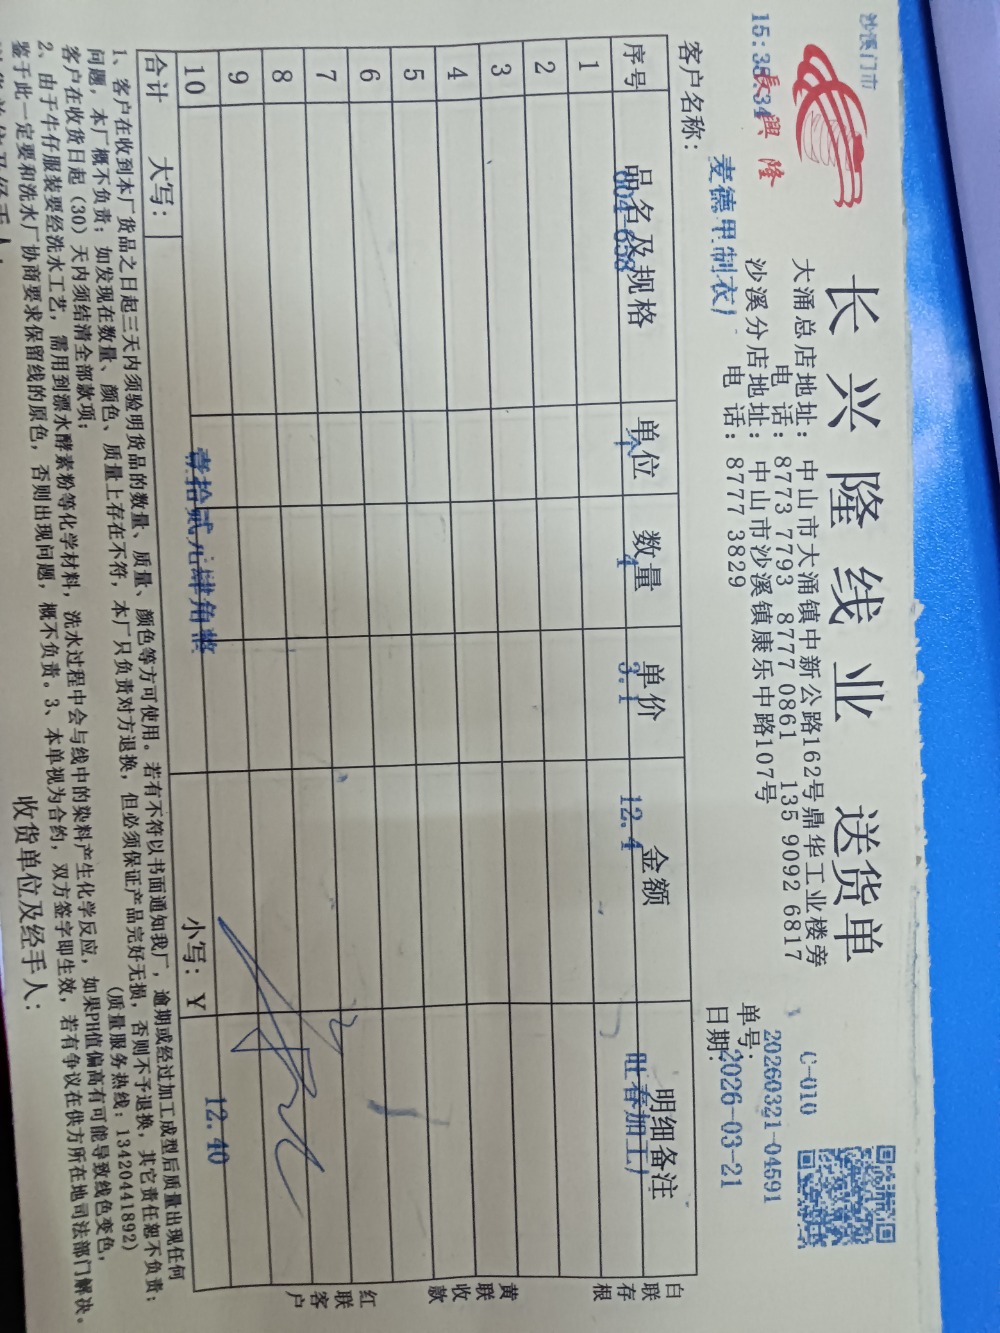 沙溪门市
15:38:34
長興隆
长兴隆线业 送货单
大涌总店地址：中山市大涌镇中新公路162号鼎华工业楼旁
电 话：8773 7793 8777 0861 135 9092 6817
沙溪分店地址：中山市沙溪镇康乐中路107号
电 话：8777 3829
C-010
单号：20260321-04591
日期：2026-03-21
客户名称：麦德甲(制衣)
序号 品名及规格 单位 数量 单价 金额 明细备注
604-658 个 4 3.1 12.4 旺春加工厂
1
2
3
4
5
6
7
8
9
10
合计 大写： 壹拾贰元肆角整 小写：￥ 12.40
白联存根
黄联收款
红联客户
1、客户在收到本厂货品之日起三天内须验明货品的数量、质量、颜色等方可使用。若有不符以书面通知我厂，逾期或经过加工成型后质量出现任何
问题，本厂概不负责；如发现在数量、颜色、质量上存在不符，本厂只负责对方退换，但必须保证产品完好无损，否则不予退换，其它责任恕不负责；
客户在收货日起（30）天内须结清全部款项； (质量服务热线：13420441892)
2、由于牛仔服装要经洗水工艺，需用到漂水酵素粉等化学材料，洗水过程中会与线中的染料产生化学反应，如果PH值偏高有可能导致线色变色，
鉴于此一定要和洗水厂协商要求保留线的原色，否则出现问题，概不负责。3、本单视为合约，双方签字即生效，若有争议在供方所在地司法部门解决。
收货单位及经手人：